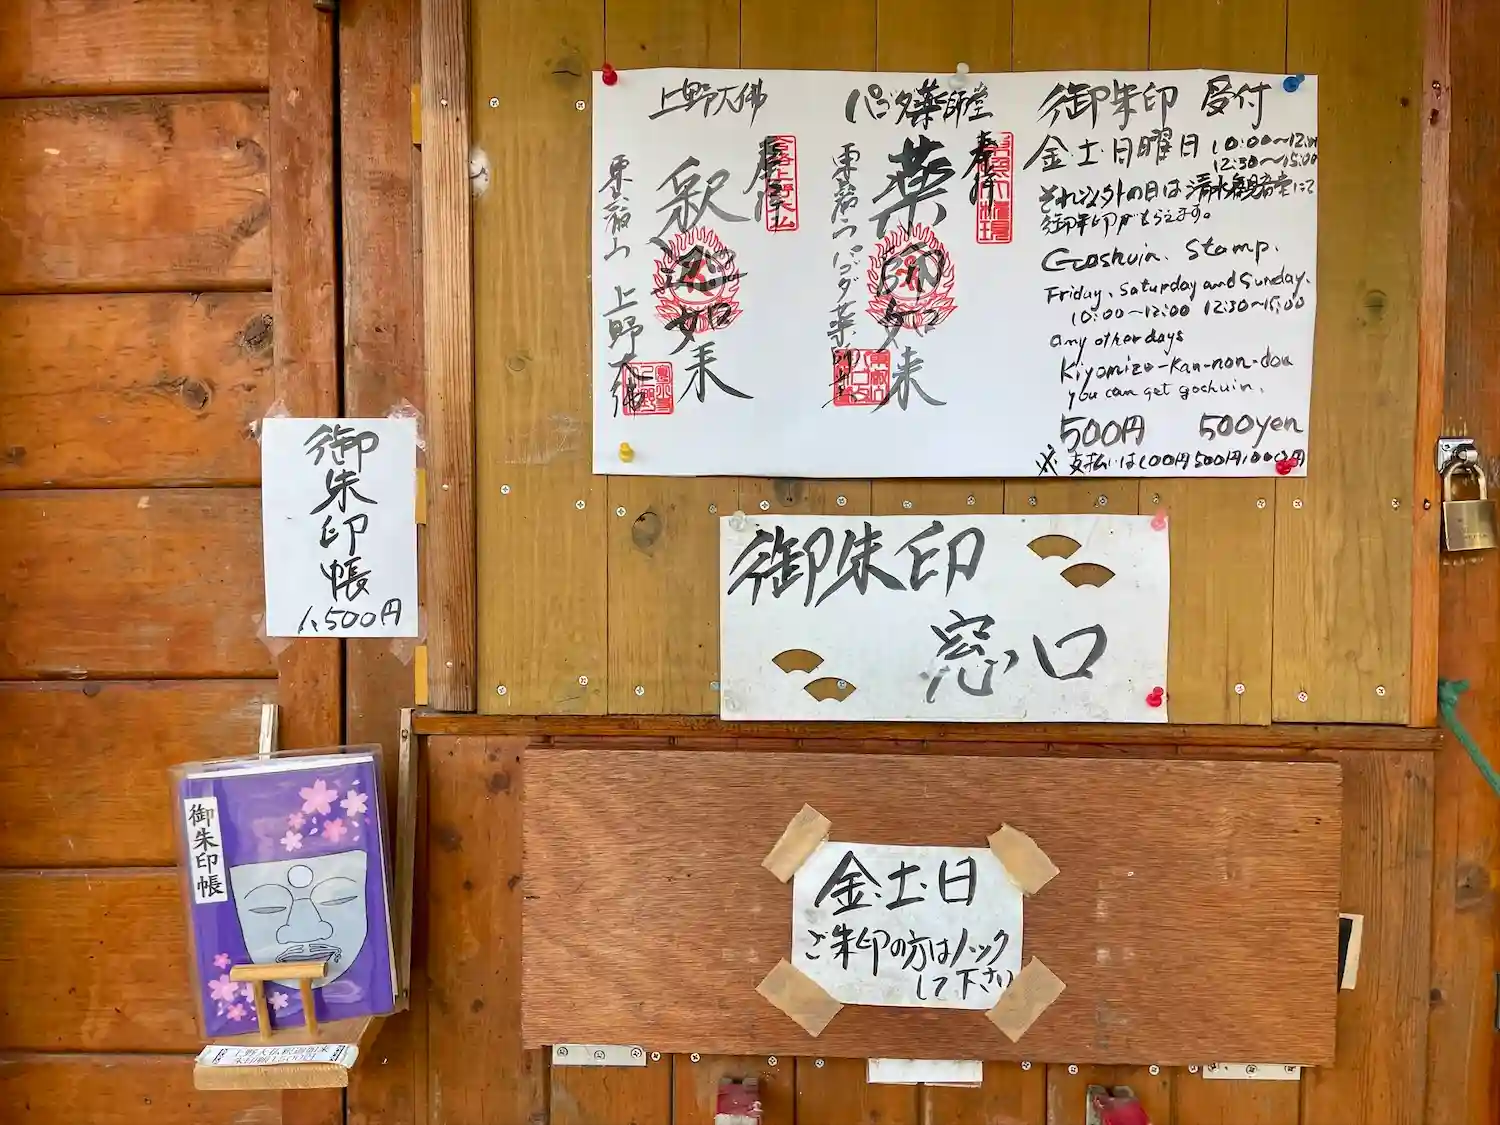 上野大佛
奉拝
釈迦如来
東叡山 上野大佛
パゴダ薬師堂
奉拝
薬師如来
東叡山パゴダ薬師堂
御朱印 受付
金・土・日曜日 10:00～12:00
12:30～15:00
それ以外の日は清水観音堂にて
御朱印がもらえます。
Goshuin. Stamp.
Friday, Saturday and Sunday.
10:00～12:00 12:30～15:00
any other days
Kiyomizo-Kan-non-dou
you can get goshuin.
500円 500yen
※支払いは100円500円1000円
御朱印帳
1,500円
御朱印
窓口
御朱印帳
金・土・日
ご朱印の方はノック
して下さい
上野大仏釈迦如来
朱印帳1,500円